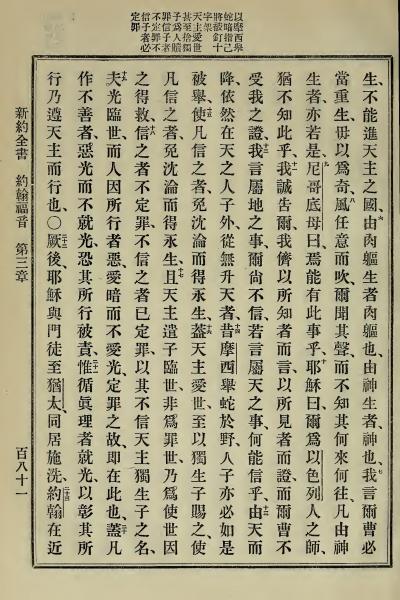 以摩西舉
蛇暗指己
將被釘十
字架
天主愛世
甚至捨獨
子爲人贖
罪信子者
不定罪不
信子者必
定罪
生、不能進天主之國、六由肉軀生者肉軀也、由神生者、神也、七我言爾曹必
當重生、毋以爲奇、八風任意而吹、爾聞其聲、而不知其何來何往、凡由神
生者、亦若是、九尼哥底母曰、焉能有此事乎、十耶穌曰、爾爲以色列人之師、
猶不知此乎、十一我誠告爾、我儕以所知者而言、以所見者而證、而爾曹不
受我之證、十二我言屬地之事、爾尚不信、若言屬天之事、何能信乎、十三由天而
降、依然在天之人子外、從無升天者、十四昔摩西舉蛇於野、人子亦必如是
被舉、十五使凡信之者、免沈淪而得永生、十六蓋天主愛世、至以獨生子賜之、使
凡信之者、免沈淪而得永生、十七且天主遣子臨世、非爲罪世、乃爲使世因
之得救、十八信之者不定罪、不信之者已定罪、以其不信天主獨生子之名、
十九夫光臨世、而人因所行者惡、愛暗而不愛光、定罪之故、即在此也、二十蓋凡
作不善者、惡光而不就光、恐其所行被責、二十一惟循眞理者就光、以彰其所
行乃遵天主而行也、○二十二厥後、耶穌與門徒至猶太、同居施洗、二十三約翰在近
新約全書 約翰福音 第三章 百八十一